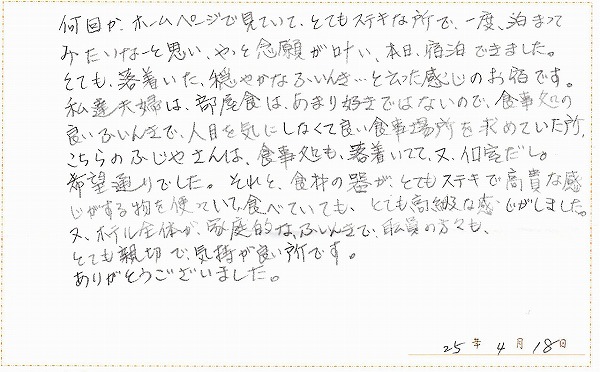 何回か、ホームページで見ていて、とてもステキな所で、一度、泊まって
みたいなーと思い、やっと念願が叶い、本日、宿泊できました。
とても、落着いた、穏やかなふいんき…と云った感じのお宿です。
私達夫婦は、部屋食は、あまり好きではないので、食事処の
良いふいんきで、人目を気にしなくて良い食事場所を求めていた所、
こちらのふじやさんは、食事処も、落着いてて、又、個室だし。
希望通りでした。それと、食材の器が、とてもステキで高貴な感
じがする物を使っていて、食べていても、とても高級な感じがしました。
又、ホテル全体が、家庭的な、ふいんきで、職員の方々も、
とても親切で、気持が良い所です。
ありがとうございました。
25年4月18日